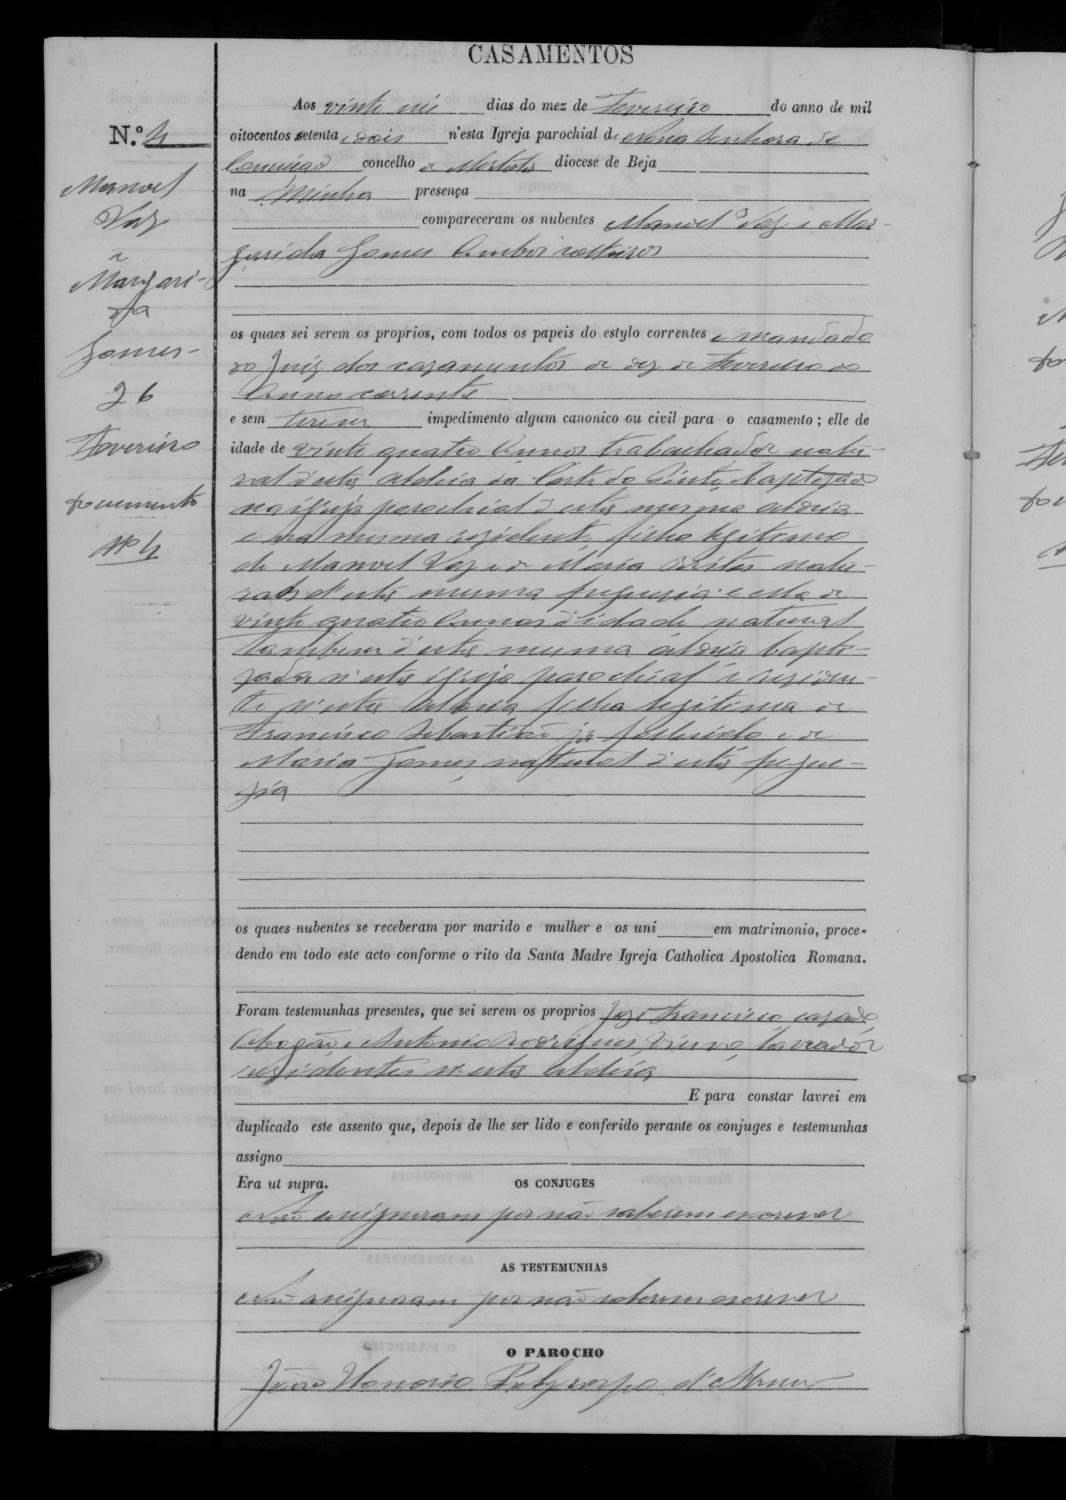 CASAMENTOS
Aos vinte seis dias do mez de Fevereiro do anno de mil
N.º 4
oitocentos setenta e dois n'esta Igreja parochial de Nossa Senhora da
Conceição concelho de Mertola diocese de Beja
na Minha presença
compareceram os nubentes Manoel Vaz e Mar-
garida Gomes Ambos solteiros
Manoel
Vaz
e
Margari-
da
Gomes
26
Fevereiro
Documento
Nº 4
os quaes sei serem os proprios, com todos os papeis do estylo correntes e mandado
do Juiz dos cazamentos de dez de Fevereiro do
Anno corrente
e sem terem impedimento algum canonico ou civil para o casamento; elle de
idade de vinte quatro Annos trabalhador natu-
ral d'esta Aldeia da Corte do Pinto, baptizado
na igreja parochial d'esta mesma aldeia
e na mesma rezidente, filho legitimo
de Manoel Vaz e de Maria natu-
raes d'esta mesma freguezia: e ella de
vinte quatro Annos d'idade natural
tambem d'esta mesma aldeia bapti-
zada n'esta igreja parochial e reziden-
te n'esta Aldeia filha legitima de
Francisco Sebastião já fallecido e de
Maria Gomes, natural d'esta fregue-
zia
os quaes nubentes se receberam por marido e mulher e os uni em matrimonio, proce-
dendo em todo este acto conforme o rito da Santa Madre Igreja Catholica Apostolica Romana.
Foram testemunhas presentes, que sei serem os proprios José Francisco, cazado,
Abegão e Antonio Rodrigues, Viuvo, lavrador
rezidentes n'esta Aldeia
E para constar lavrei em
duplicado este assento que, depois de lhe ser lido e conferido perante os conjuges e testemunhas
assigno
Era ut supra.
OS CONJUGES
Não assignaram por não saberem escrever
AS TESTEMUNHAS
Não assignaram por não saberem escrever
O PAROCHO
João Honorio Polycarpo